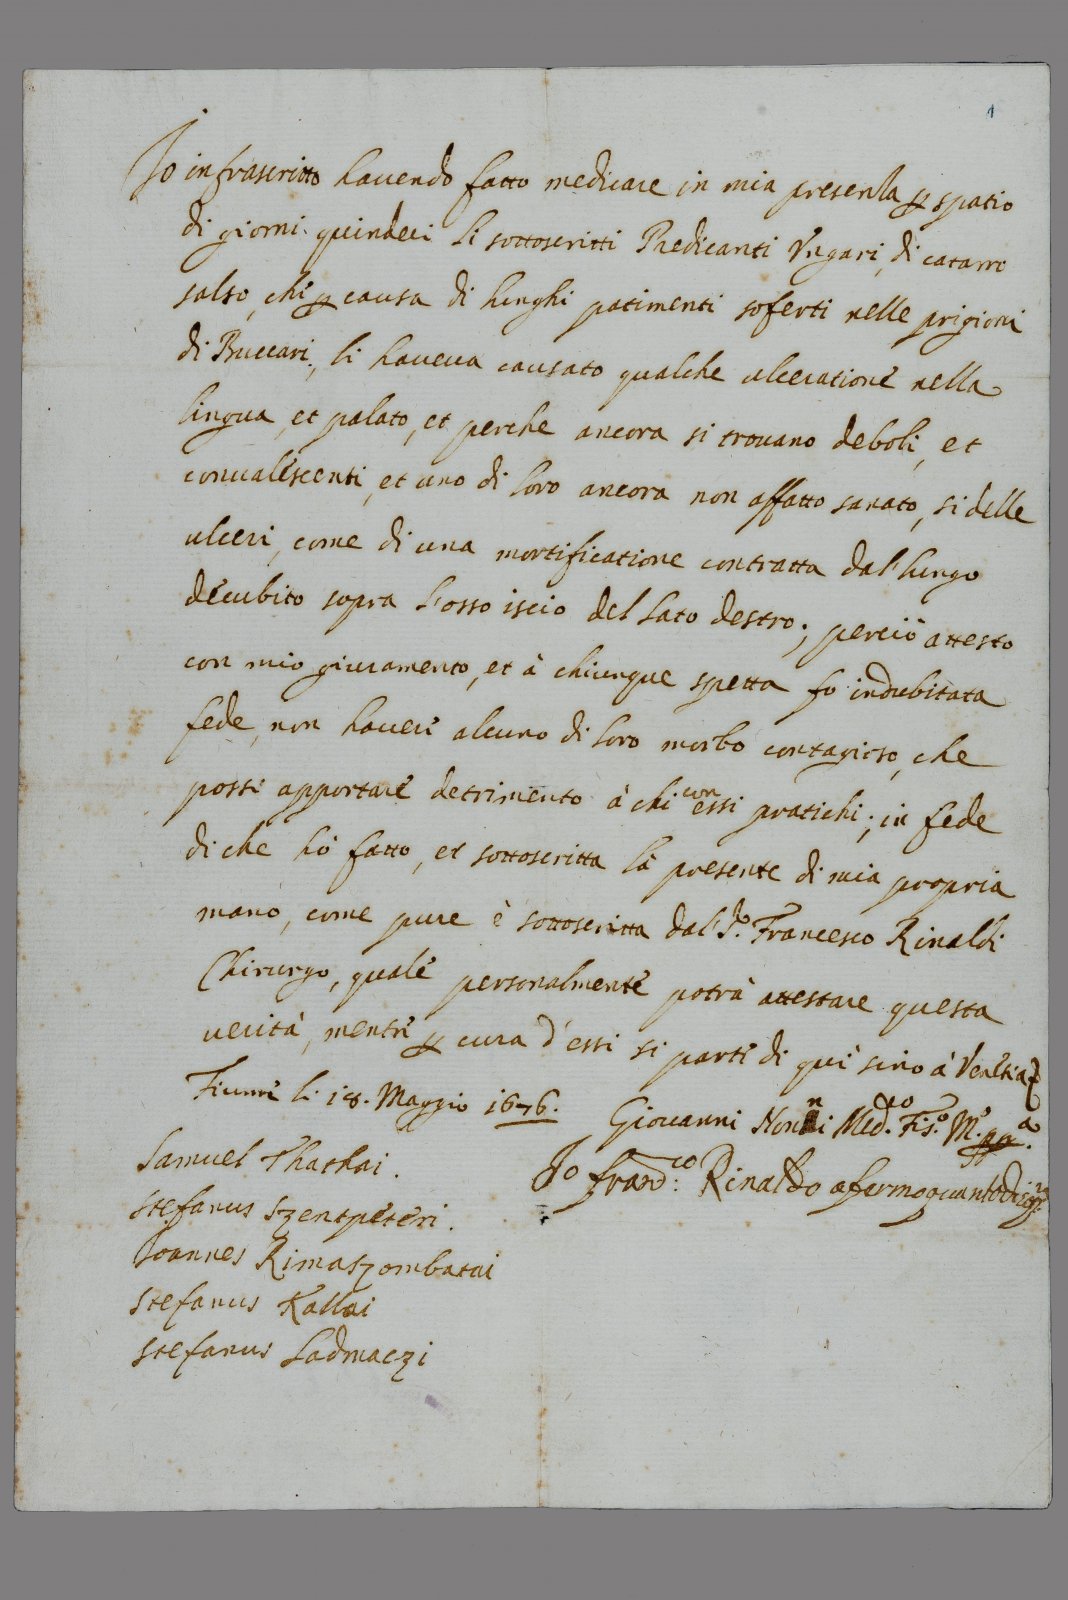 1
Io infrascritto havendo fatto medicare in mia presenza p spatio
di giorni quindeci li sottoscritti Predicanti Vngari, di catarro
salso, che p causa di lunghi patimenti soferti nelle prigioni
di Buccari, li haueua causato qualche ulceratione nella
lingua, et palato, et perche ancora si trouano deboli, et
conualescenti, et uno di loro ancora non affatto sanato, si delle
ulceri, come di una mortificatione contratta dal lungo
decubito sopra l'osso iscio del lato destro; perciò attesto
con mio giuramento, et à chiunque spetta fo indubitata
fede, non hauere alcuno di loro morbo contagioso, che
possi apportare detrimento à chi con essi pratichi; in fede
di che hò fatto, et sottoscritta la presente di mia propria
mano, come pure è sottoscritta dal S.r Francesco Rinaldi
Chirurgo, quale personalmente potrà attestare questa
uerità, mentre p cura d'essi si parte di quì sino à Venetia
Fiume li 18. Maggio 1676.
Giouanni Med.co Fis.o
Io Franc.co Rinaldo afermo quanto di
Samuel Thathai.
Stefanus Szentpeteri.
Joannes Rimaszombatai
Stefanus Kallai
Stefanus Ladmaczi